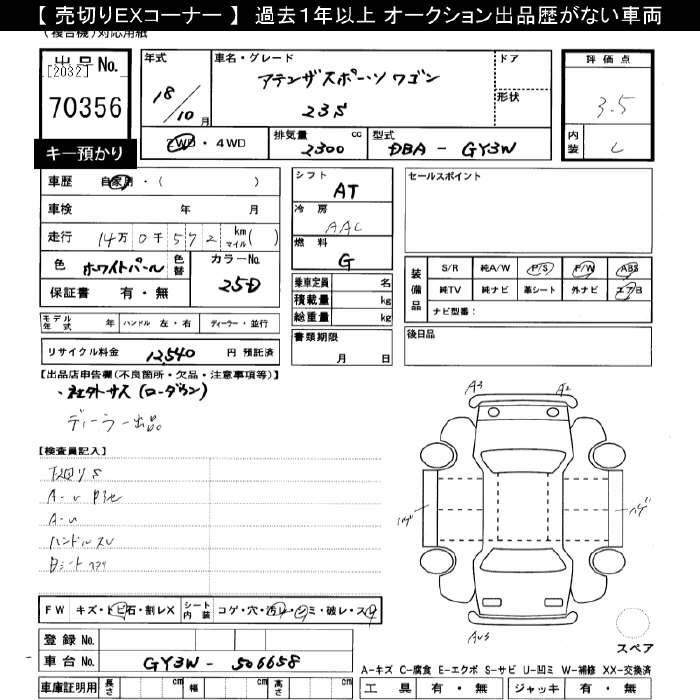 【 売切りEXコーナー 】 過去1年以上 オークション出品歴がない車両
(複合機)対応用紙
出品No.
[2032]
70356
キー預かり
年式
18/10月
車名・グレード
アテンザスポーツワゴン
23S
ドア
形状
評価点
3.5
内装
C
2WD・4WD
排気量 cc
2300
型式
DBA - GY3W
車歴 自家用・( )
車検 年 月
走行 14万0千572 km マイル( )
色 ホワイトパール 色替
カラーNo.
25D
保証書 有・無
シフト
AT
冷房
AAC
燃料
G
乗車定員 名
積載量 kg
総重量 kg
書類期限
月 日
セールスポイント
装備品
S/R 純A/W P/S P/W ABS
純TV 純ナビ 革シート 外ナビ エアB
ナビ型番:
後日品
モデル年式 年 ハンドル 左・右 ディーラー・並行
リサイクル料金 12,540 円 預託済
【出品店申告欄(不良箇所・欠品・注意事項等)】
・社外サス(ローダウン)
ディーラー出品
【検査員記入】
下回りS
A-U
ハンドルスレ
A3
A2
ハゲ
ハゲ
スペア
FW キズ・トビ石・割レX シート内装 コゲ・穴・汚レ・シミ・破レ・スレ
登録No.
車台No. GY3W - 506658
車庫証明用 長さ cm 幅 cm 高さ cm
A-キズ C-腐食 E-エクボ S-サビ U-凹ミ W-補修 XX-交換済
工具 有・無 ジャッキ 有・無